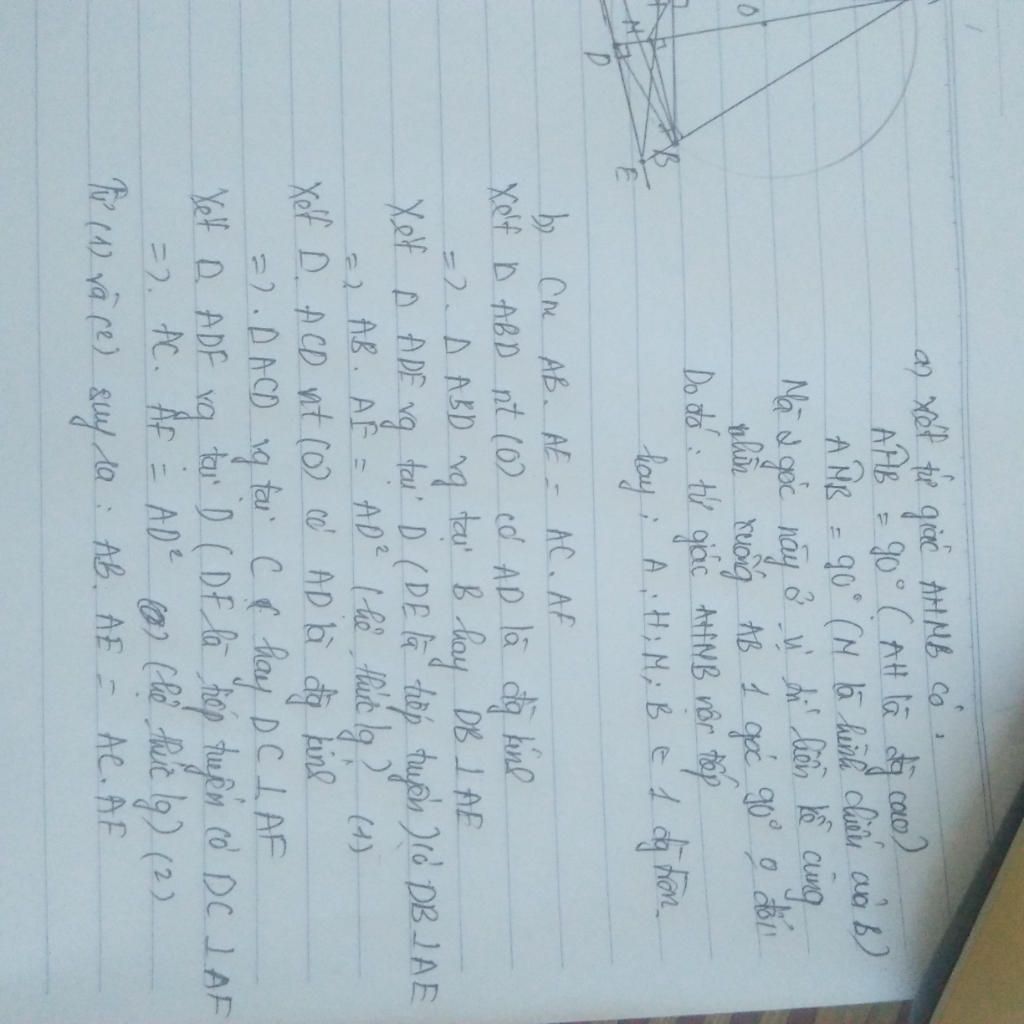 O
M
D
B
E
a) Xét tứ giác AHMB có:
AHB = 90° (AH là đg cao)
AMB = 90° (M là hình chiếu của B)
Mà 2 góc này ở vị trí liền kề cùng
nhìn xuống AB 1 góc 90° o đổi
Do đó: tứ giác AHMB nội tiếp
hay: A, H, M, B ∈ 1 đg tròn.
b) Cm AB. AE = AC. AF
Xét Δ ABD nt (O) có AD là đg kính
=> Δ ABD vg tại B hay DB ⊥ AE
Xét Δ ADE vg tại D (DE là tiếp tuyến) có DB ⊥ AE
=> AB. AE = AD² (hệ thức lg) (1)
Xét Δ ACD nt (O) có AD là đg kính
=> Δ ACD vg tại C hay DC ⊥ AF
Xét Δ ADF vg tại D (DF là tiếp tuyến có DC ⊥ AF
=> AC. AF = AD² (hệ thức lg) (2)
Từ (1) và (2) suy ra: AB. AE = AC. AF